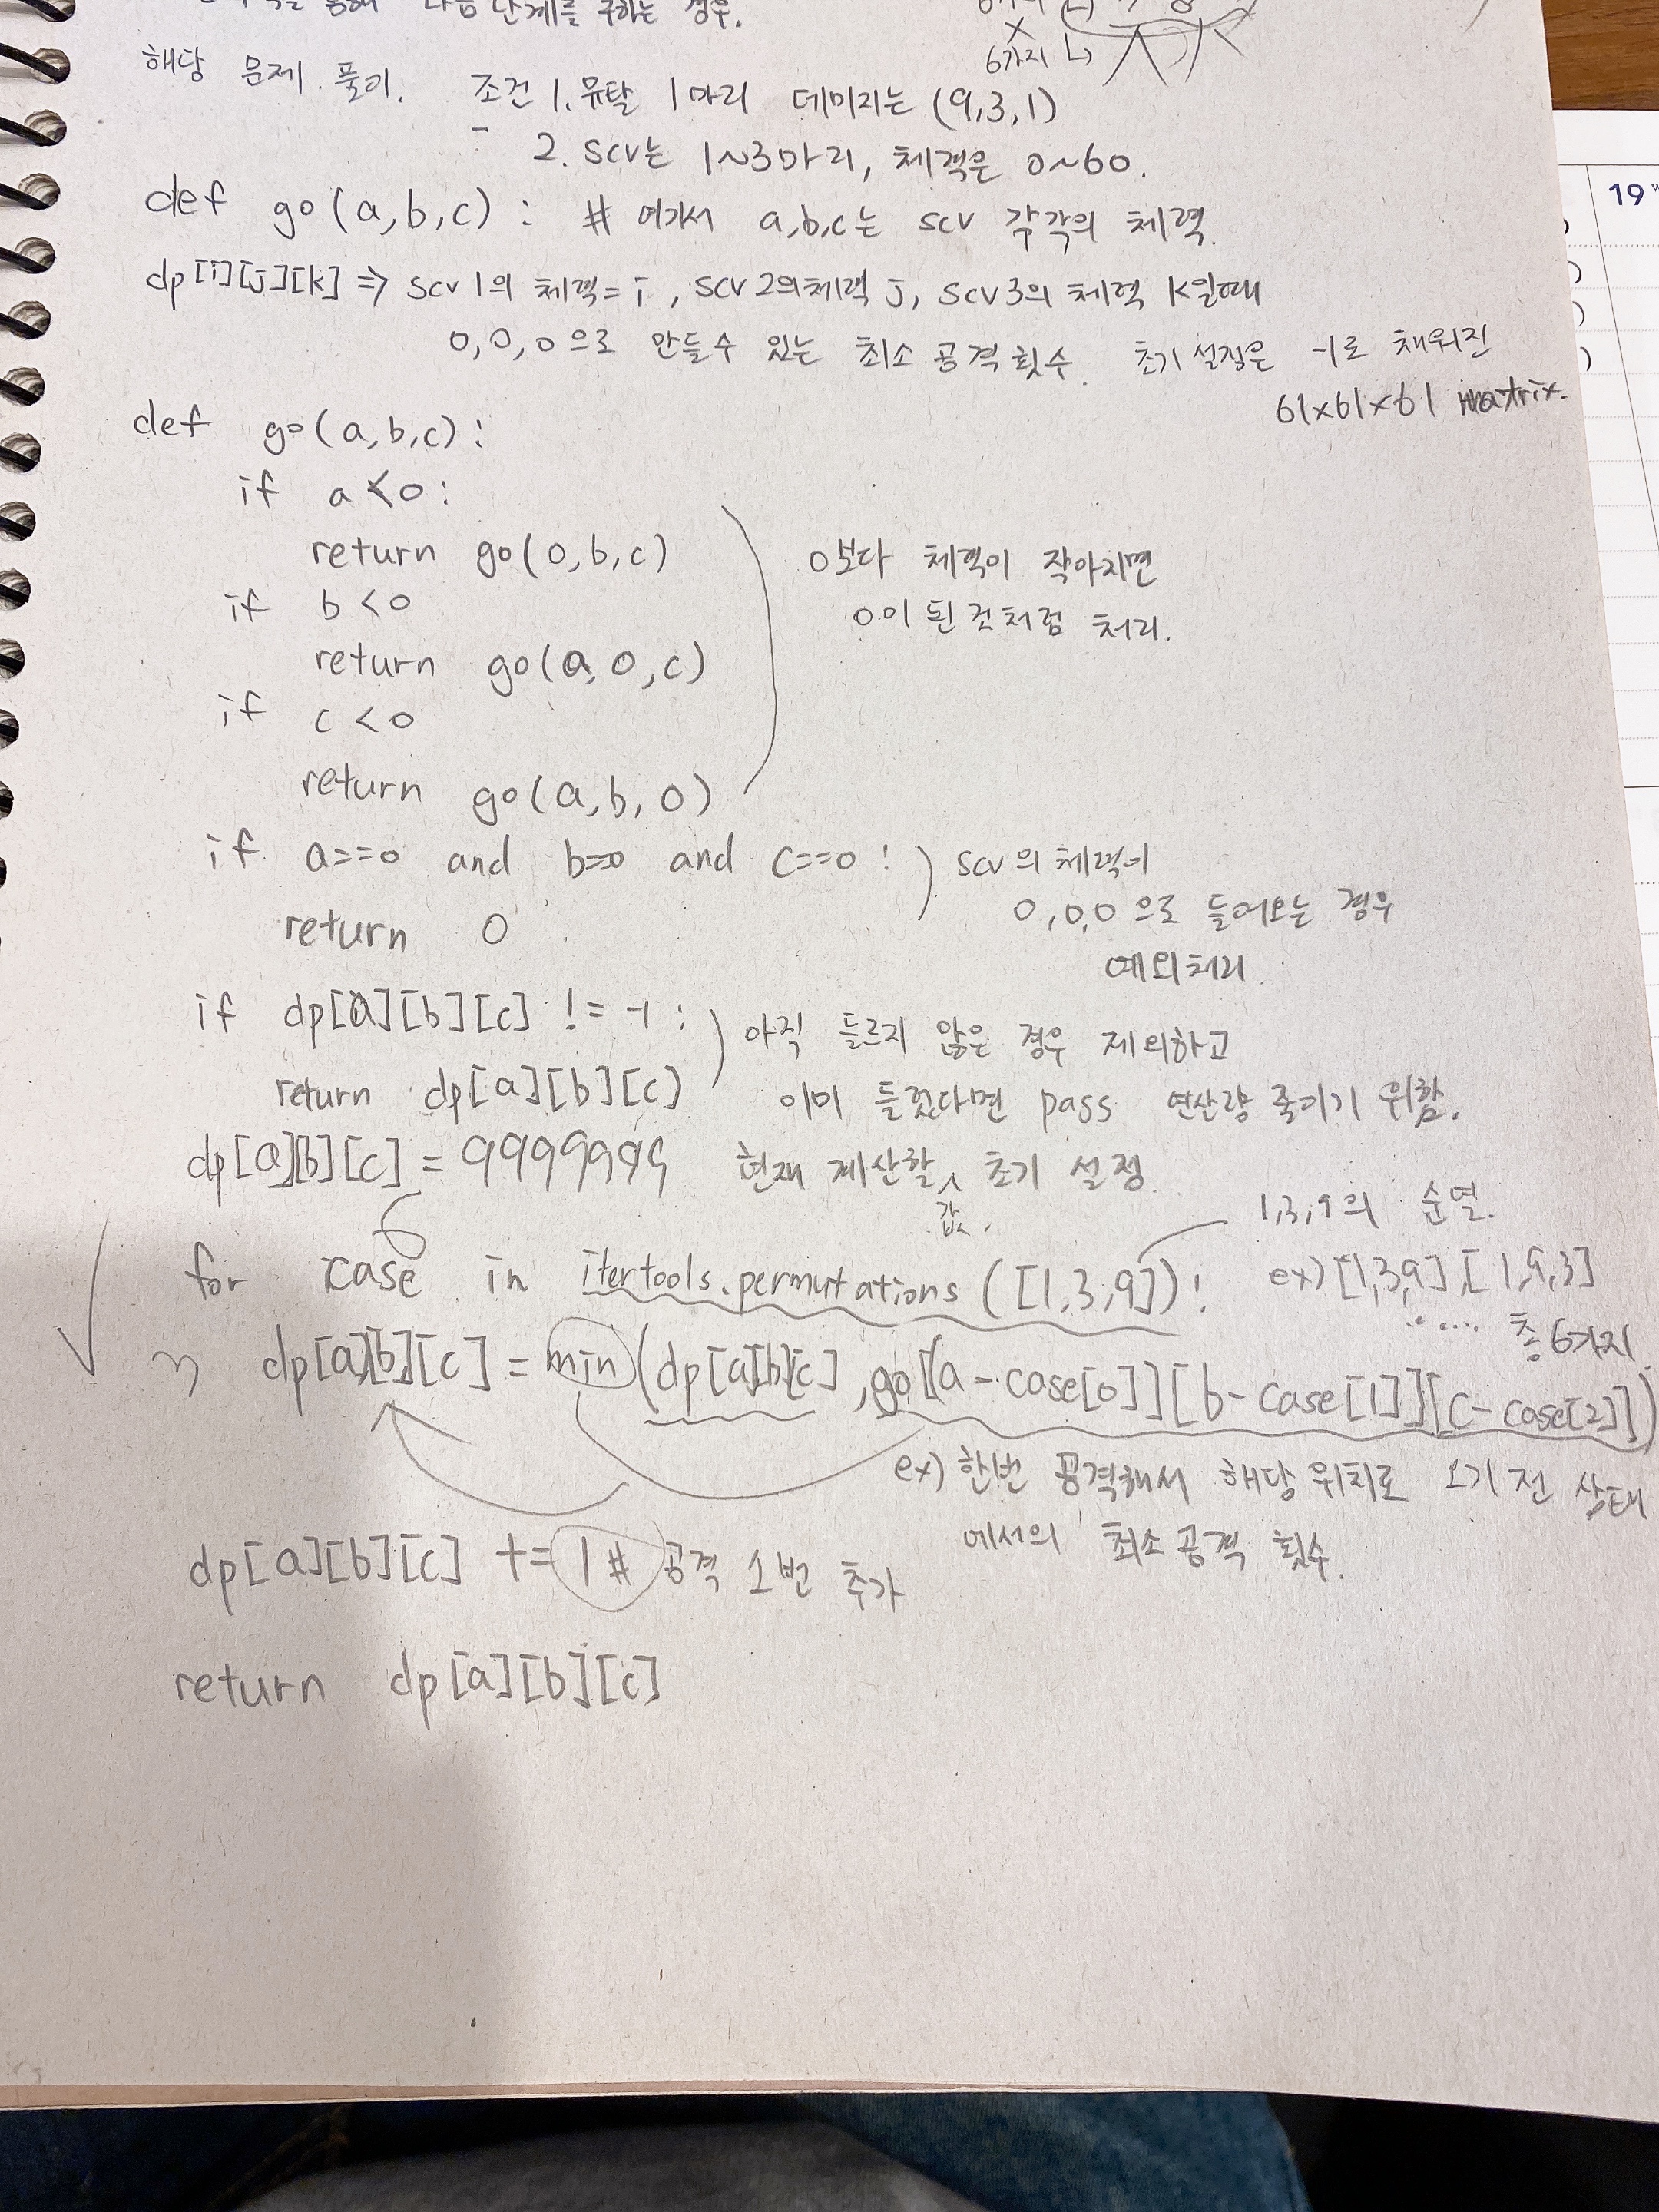 다음 단계를 구하는 경우.
6가지
해당 문제 풀이. 조건 1. 뮤탈 1마리 데미지는 (9,3,1)
2. scv는 1~3마리, 체력은 0~60.
def go(a,b,c): # 여기서 a,b,c는 scv 각각의 체력.
dp[i][j][k] => scv1의 체력=i, scv2의체력 j, scv3의 체력 k일때
0,0,0으로 만들수 있는 최소 공격 횟수. 초기 설정은 -1로 채워진
61x61x61 matrix.
def go(a,b,c):
if a<0:
return go(0,b,c)
0보다 체력이 작아지면
if b<0
0이 된것처럼 처리.
return go(a,0,c)
if c<0
return go(a,b,0)
if a==0 and b==0 and c==0: scv의 체력이
0,0,0으로 들어오는 경우
return 0
예외처리
if dp[a][b][c] != -1: 아직 들르지 않은 경우 제외하고
return dp[a][b][c] 이미 들렀다면 pass 연산량 줄이기 위함.
dp[a][b][c] = 9999999 현재 계산할 값. 초기 설정
1,3,9의 순열.
for case in itertools.permutations([1,3,9]): ex)[1,3,9],[1,9,3]
..... 총 6가지
dp[a][b][c] = min(dp[a][b][c], go[(a-case[0]][b-case[1]][c-case[2]])
ex) 한번 공격해서 해당 위치로 오기 전 상태
에서의 최소 공격 횟수.
dp[a][b][c] += 1 # 공격 1번 추가
return dp[a][b][c]
19